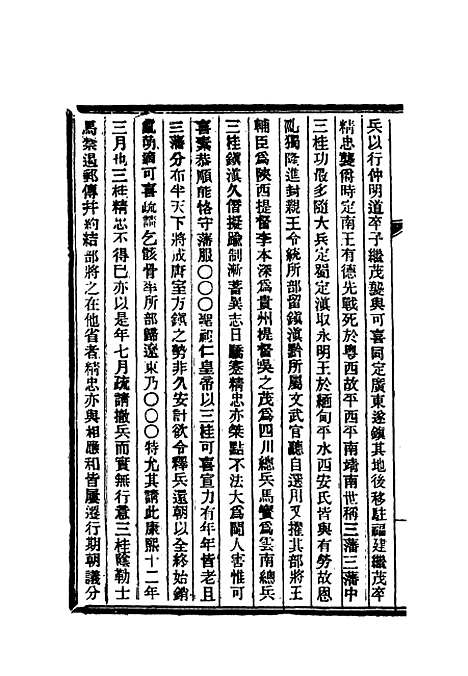 兵以行仲明道卒子繼茂襲與可喜同定廣東遂鎮其地後移駐福建繼茂卒
精忠襲爵時定南王有德先戰死於粤西故平西平南靖南世稱三藩三藩中
三桂功最多隨大兵定蜀定滇取永明王於緬甸平水西安氏皆與有勞故恩
亂獨隆進封親王令統所部留鎮滇黔所屬文武官聽自選用又擢其部將王
輔臣爲陝西提督李本深爲貴州提督吳之茂爲四川總兵馬寶爲雲南總兵
三桂鎮滇久僭擬踰制漸蓄異志日驕蹇精忠亦桀黠不法大爲閩人害惟可
喜素恭順能恪守藩服〇〇〇聖祖仁皇帝以三桂可喜宣力有年年皆老且
三藩分布半天下將成唐室方鎮之勢非久安計欲令釋兵還朝以全終始銷
亂萌適可喜疏請乞骸骨率所部歸遼東乃〇〇〇特允其請此康熙十二年
三月也三桂精忠不得已亦以是年七月疏請撤兵而實無行意三桂陰勒士
馬禁遏郵傳幷約結部將之在他省者精忠亦與相應和皆屢遷行期朝議分